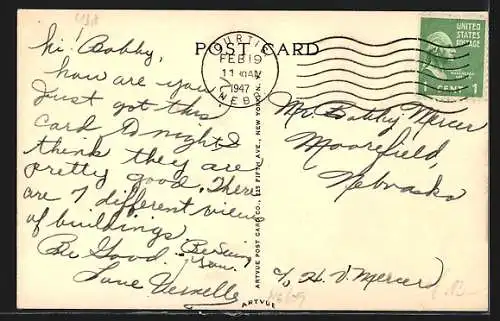 Hi! Bobby,
how are you?
Just got this
card tonight I
think they are
pretty good. There
are 7 different views
of buildings
Be Good. Be Seeing
you.
Love Vernelle
POST CARD
CURTIS
FEB 19
11 30 AM
1947
NEBR.
UNITED
STATES
POSTAGE
1 CENT 1
Mr. Bobby Mercer
Moorefield,
Nebraska
c/o H. V. Mercer
ARTVUE POST CARD CO., 225 FIFTH AVE., NEW YORK N.Y.
ARTVUE